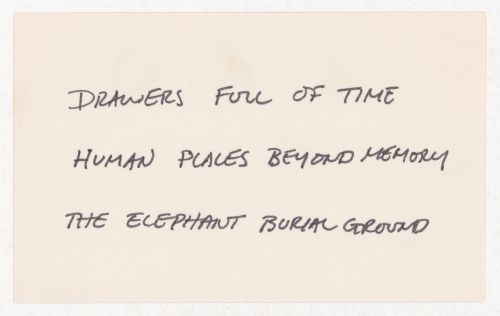 DRAWERS FULL OF TIME
HUMAN PLACES BEYOND MEMORY
THE ELEPHANT BURIAL GROUND